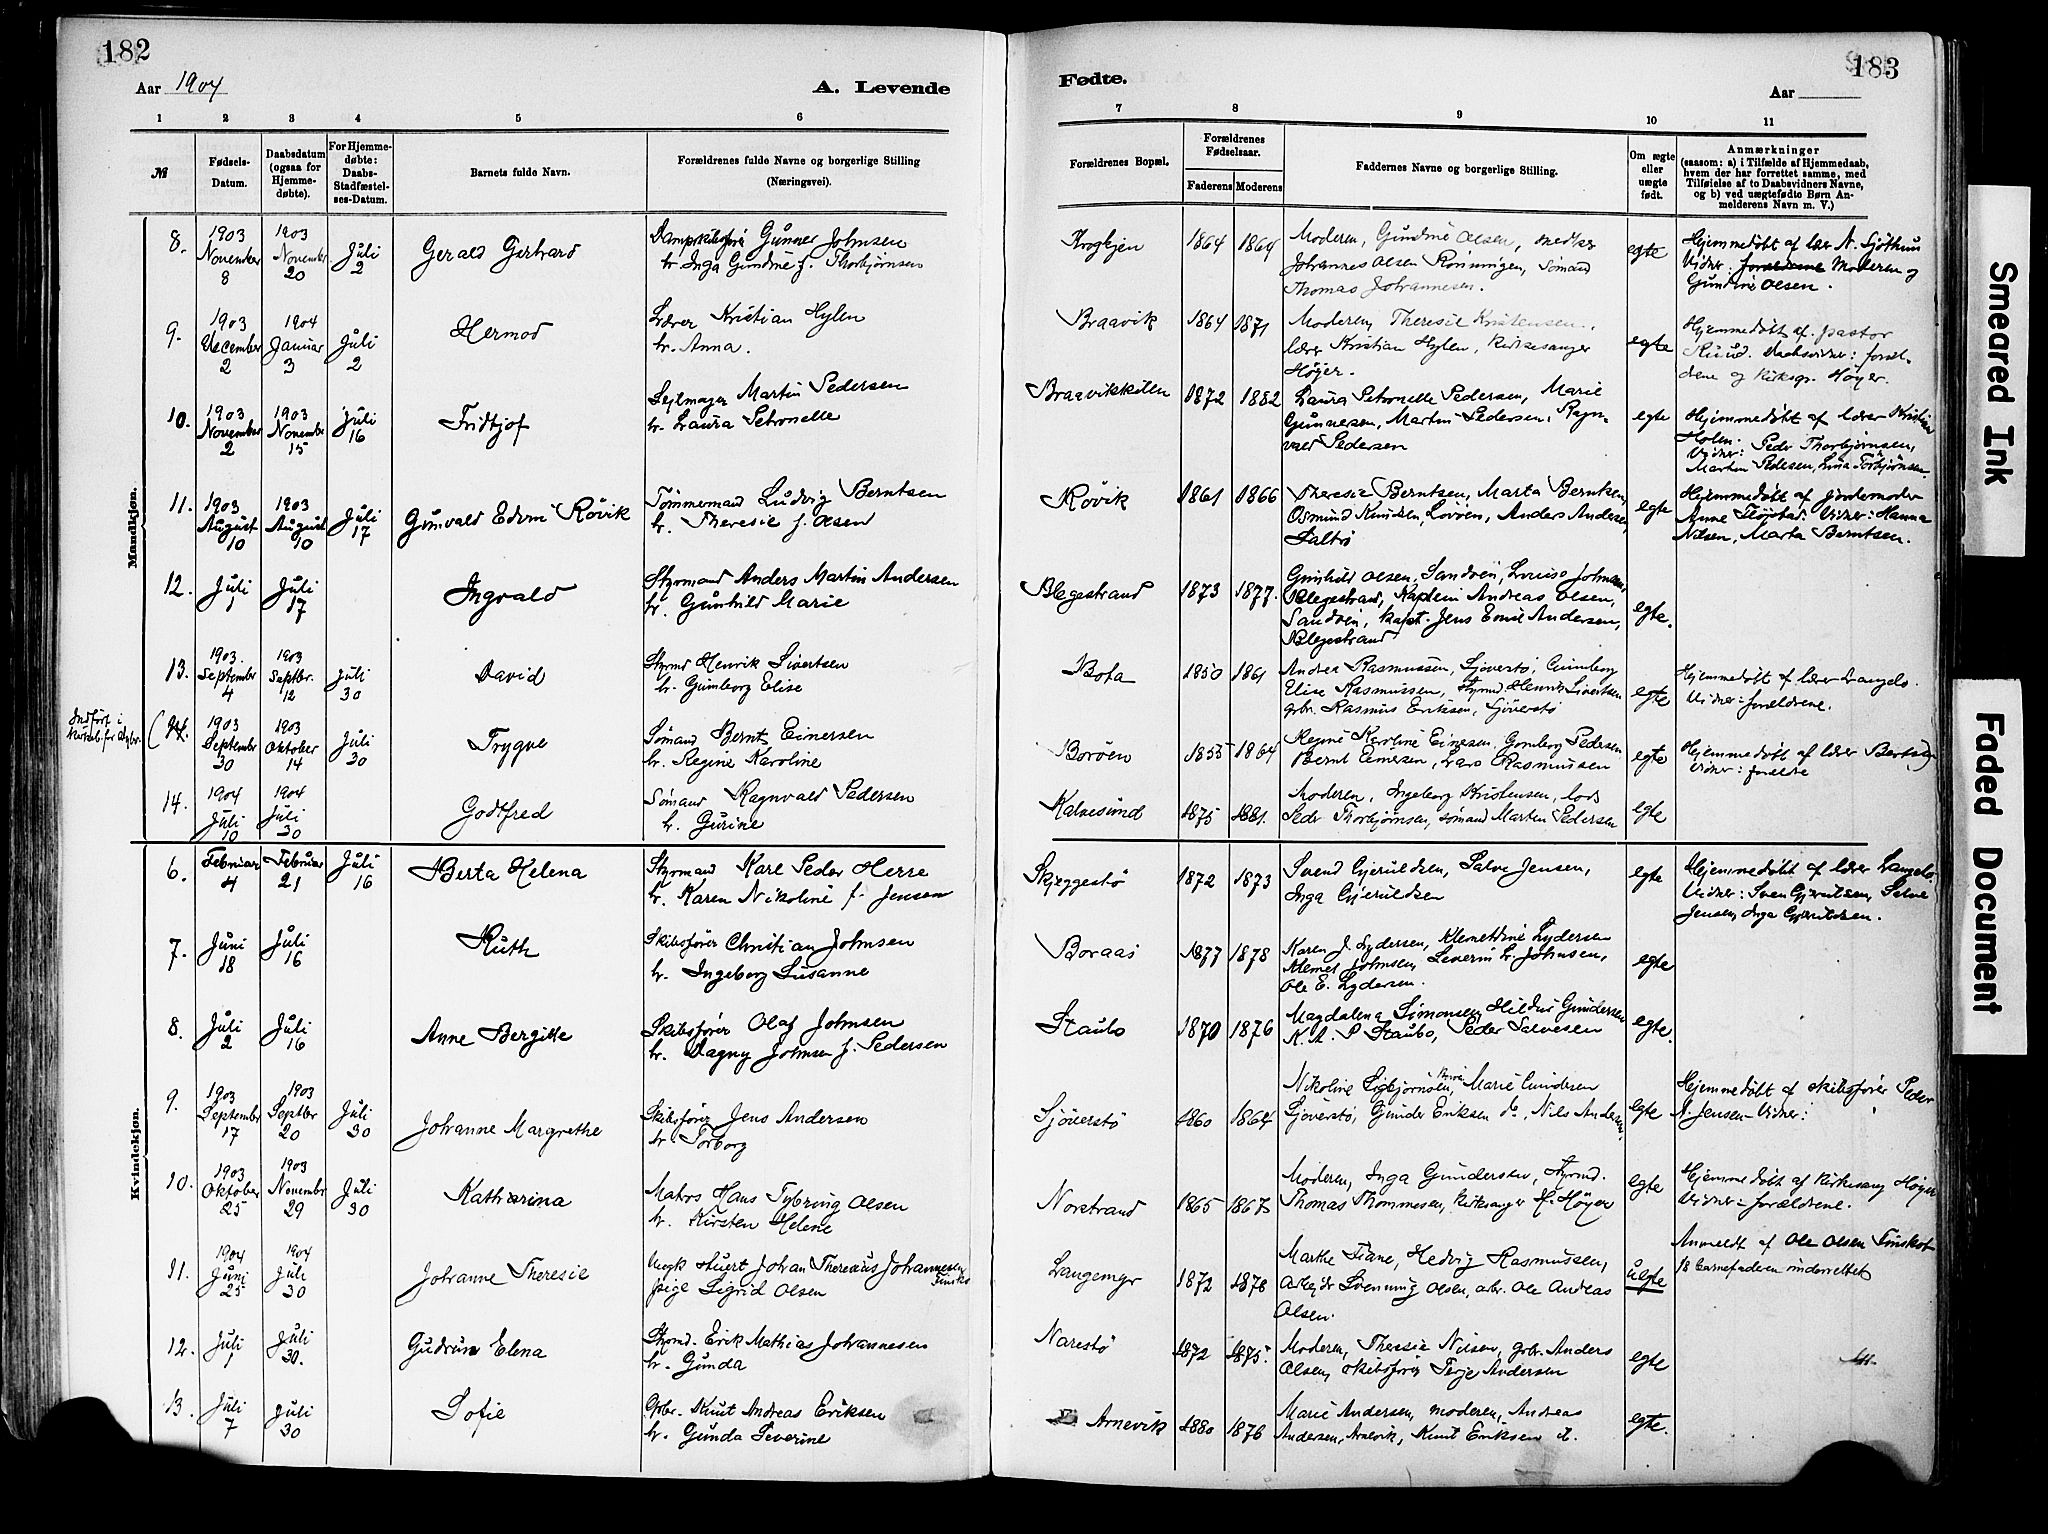 182
Aar 1904
A. Levende
1 2 3 4 5 6
№
Fødsels-Datum.
Daabsdatum (ogsaa for Hjemmedøbte).
For Hjemmedøbte: Daabs-Stadfæstelses-Datum.
Barnets fulde Navn.
Forældrenes fulde Navne og borgerlige Stilling
(Næringsvei).
Mandkjøn.
8. 1903 November 8 1903 November 20 Juli 2 Gerald Gerhard
Dampskibsfører Gunner Johnsen
h. Inga Gundine f. Thorbjørnsen
9. 1903 December 2 1904 Januar 3 Juli 2 Hermod
Lærer Kristian Hylen
h. Anna.
10. 1903 November 2 1903 November 15 Juli 16 Fridtjof
Sejlmager Martin Pedersen
h. Laura Petronelle
11. 1903 August 10 1903 August 10 Juli 17 Gunvald Edvin Røvik
Tømmermand Ludvig Berntsen
h. Theresie f. Olsen
12. Juli 1 Juli 17 Ingvald
Styrmand Anders Martin Andersen
h. Gunhild Marie
13. 1903 September 4 1903 Septbr. 12 Juli 30 David
Styrmd Henrik Sivertsen
h. Gunborg Elise
Indført i
1903 September 30 1903 Oktober 14 Juli 30 Trygve
Sømand Bernt Einersen
h. Regine Karoline
14. 1904 Juli 10 1904 Juli 30 Godtfred
Sømand Ragnvald Pedersen
h. Gurine
Kvindekjøn.
6. Februar 4 Februar 21 Juli 16 Berta Helena
Styrmand Karl Peder Herre
h. Karen Nikoline f. Jensen
7. Juni 18 Juli 16 Ruth
Skibsfører Christian Johnsen
h. Ingeborg Susanne
8. Juli 2 Juli 16 Anne Bergitte
Skibsfører Olaf Johnsen
h. Dagny Johnsen f. Pedersen
9. 1903 September 17 1903 Septbr 20 Juli 30 Johanne Margrethe
Skibsfører Jens Andersen
h. Torborg
10. 1903 Oktober 25 1903 November 29 Juli 30 Katharina
Matros Hans Tybring Olsen
h. Kirsten Helene
11. 1904 Juni 25 1904 Juli 30 Johanne Theresie
Ungk Stuert Johan Theresius Johannesen
pige Sigrid Olsen
12. Juli 1 Juli 30. Gudrun Elena
Styrmd. Erik Mathias Johannesen
h. Gunda
13. Juli 7 Juli 30 Sofie
Gbr. Knut Andreas Eriksen
h. Gunda Severine
183
Fødte.
Aar
7 8 9 10 11
Forældrenes Bopæl.
Forældrenes Fødselsaar.
Faderens Moderens
Faddernes Navne og borgerlige Stilling.
Om ægte eller uægte født.
Anmærkninger
(saasom: a) i Tilfælde af Hjemmedaab,
hvem der har forrettet samme, med
Tilføielse af to Daabsvidners Navne,
og b) ved uægtefødte Børn Anmelderens Navn m. V.)
Krogkjen 1864 1864
Moderen, Gundine Olsen,
Johannes Olsen Rønningen, Sømand
Thomas Johannesen.
egte
Hjemmedøbt af lær N. Sjøthun
Vidner: forældrene Moderen og
Gundine Olsen.
Braavik 1864 1871
Moderen, Theresie Kristensen,
lærer Kristian Hylen, Kirkesanger
Høyer.
egte
Hjemmedøbt af pastor
Ruud. Daabsvidner: forældrene og Kirksgr. Høyer.
Braavikkilen 1872 1882
Laura Petronelle Pedersen, Marie
Gunnesen, Martin Pedersen, Ragnvald Pedersen
egte
Hjemmedøbt af lærer Kristian
Holen. Peder Thorbjørnsen,
Vidner: Martin Pedersen, Lina Torbjørnsen
Røvik 1861 1866
Theresie Berntsen, Marta Berntsen,
Osmund Knudsen, Lovøen, Anders Andersen,
Saltrø
egte
Hjemmedøbt af Jordemoder
Anne Fløistad. Vidner: Hanna
Nilsen, Marta Berntsen.
Blegestrand 1873 1877.
Gunhild Olsen, Sandøen, Lovise Johnsen,
Blegestrand, Kaptein Andreas Olsen,
Sandøen, Kapt. Jens Emil Andersen,
Blegestrand
egte.
Bota 1850 1861
Andrea Rasmussen, Sjøverstø, Gunborg
Elise Rasmussen, Styrmd Henrik Sivertsen
gbr. Rasmus Eriksen, Sjøverstø
egte
Hjemmedøbt af lærer Langelo.
Vidner: forældrene.
Borøen 1855 1864
Regine Karoline Einersen, Gomborg Pedersen
Bernt Einersen, Lars Rasmussen
egte
Hjemmedøbt af lærer
Vidner: forældre
Kalvesund 1875 1881.
Moderen, Ingeborg Kristensen, lods
Peder Thorbjørnsen, sømand Martin Pedersen
egte
Skjeggestø 1872 1873
Svend Gjeruldsen, Salve Jensen,
Inga Gjeruldsen
egte
Hjemmedøbt af lærer Langelo.
Vidner: Sven Gjeruldsen, Salve
Jensen, Inga Gjeruldsen.
Boraas 1877 1878
Karen J. Lydersen, Klementine Lydersen
Klemet Johnsen, Severin L. Johnsen,
Ole E. Lydersen.
egte
Staubo 1870 1876
Magdalena Simonsen, Hildur Gundersen
K. A. P. Staubo, Peder Salvesen
egte.
Sjøverstø 1860 1864
Nikoline Eigbjørnsen, Marie Gundersen
Sjøverstø, Gunder Eriksen do, Nils Andersen.
egte
Hjemmedøbt af skibsfører Peder
N. Jensen – Vidner:
Norstrand 1865 1867
Moderen, Inga Gundersen, Styrmd.
Thomas Thommesen, kirksanger H. Høyer
egte
Hjemmedøbt af Kirkesang Høyer
Vidner: forældrene.
Langemyr 1872 1878
Marthe Tiane, Hedvig Rasmussen,
Arbejder Svenning Olsen, arb. Ole Andreas
Olsen.
uegte
Anmeldt af Ole Olsen
barnefaderen underrettet
Narestø 1872 1875.
Moderen, Theresie Nilsen, gbr. Anders
Olsen, skibsfører Terje Andersen
egte
Arnevik 1880 1876
Marie Andersen, moderen, Andreas
Andersen, Arnevik, Knut Eriksen d.
egte.
Smeared Ink
Faded Document